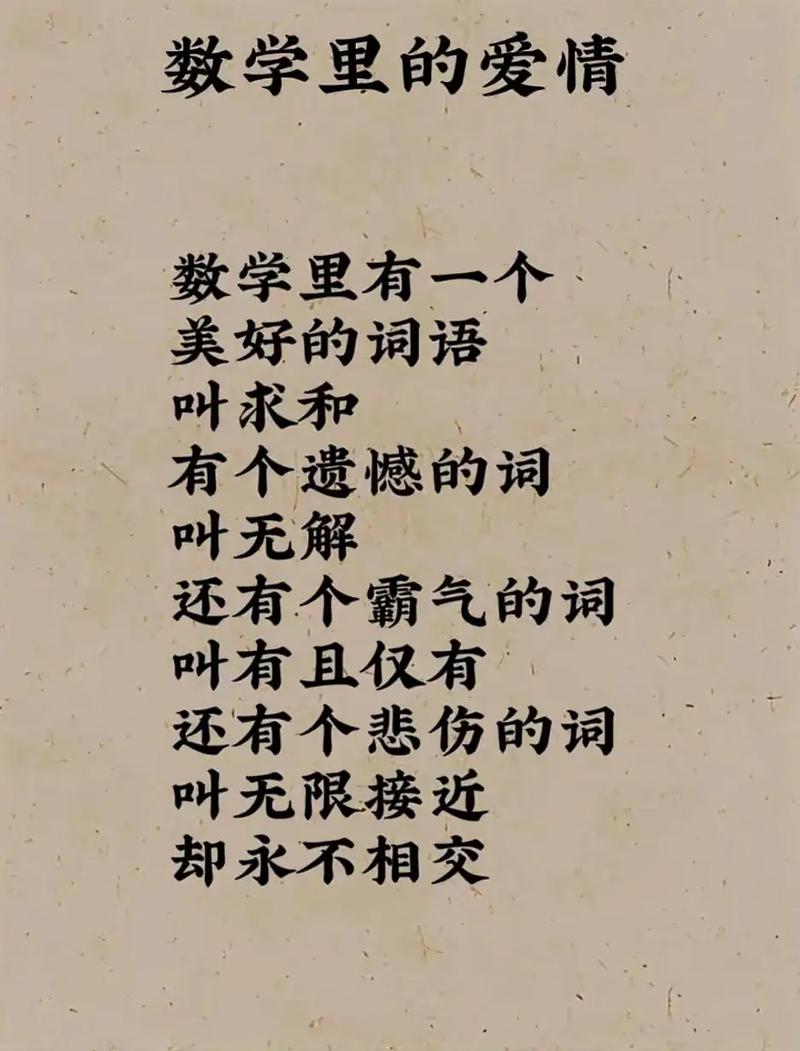 数学里的爱情
数学里有一个
美好的词语
叫求和
有个遗憾的词
叫无解
还有个霸气的词
叫有且仅有
还有个悲伤的词
叫无限接近
却永不相交